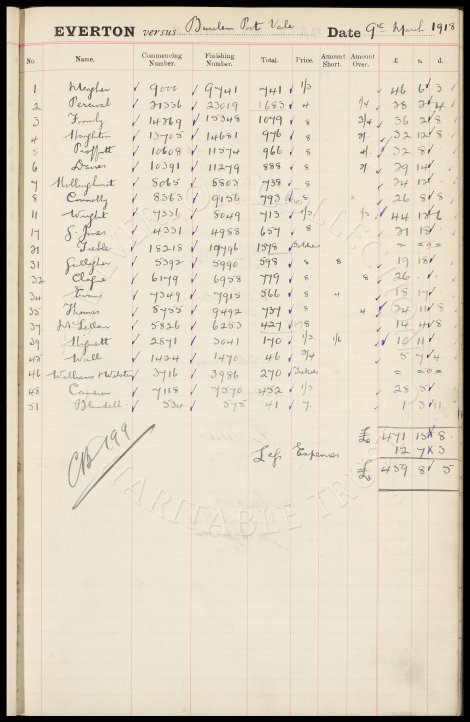 EVERTON versus Burslem Port Vale Date 9th March 1918
No. Name. Commencing Number. Finishing Number. Total. Price. Amount Short. Amount Over. £ s. d.
1 Meagher 9000 9741 741 1/3 46 6 3
2 Percival 21336 23019 1683 4 28 2 4
3 14269 15348 1079 8 3/4 36 2 8
4 Houghton 13705 14681 976 8 32 12 8
5 Proffitt 10608 11574 966 8 32 8
6 Davies 10391 11279 888 8 29 14
7 Hollinghurst 8065 8803 738 8 24 12
8 Connolly 8363 9156 793 8 26 8 8
11 Wright 7336 8049 713 1/3 44 13 6
17 S. Jones 4331 4988 657 8 21 18
21 18218 19796 1578 Soldiers
31 Gallagher 5392 5990 598 8 8 19 18
32 Clague 6179 6958 779 8 8 26
34 Evans 7349 7915 566 8 4 18 17
35 Thomas 8755 9492 737 8 4 24 11 8
37 McLellan 5826 6253 427 8 14 4 8
39 Hignett 2871 3041 170 1/3 1/6 10 11
45 Wall 1424 1470 46 2/4 5 7 4
46 Williams & Webster 3716 3986 270 Tickets
48 Cameron 7118 7570 452 1/3 28 5
51 Blundell 534 575 41 7 1 3 11
£ 471 15 8
CB 199
Less Expenses 12 7 3
£ 459 8 5
EVERTON COLLECTION
CHARITABLE TRUST